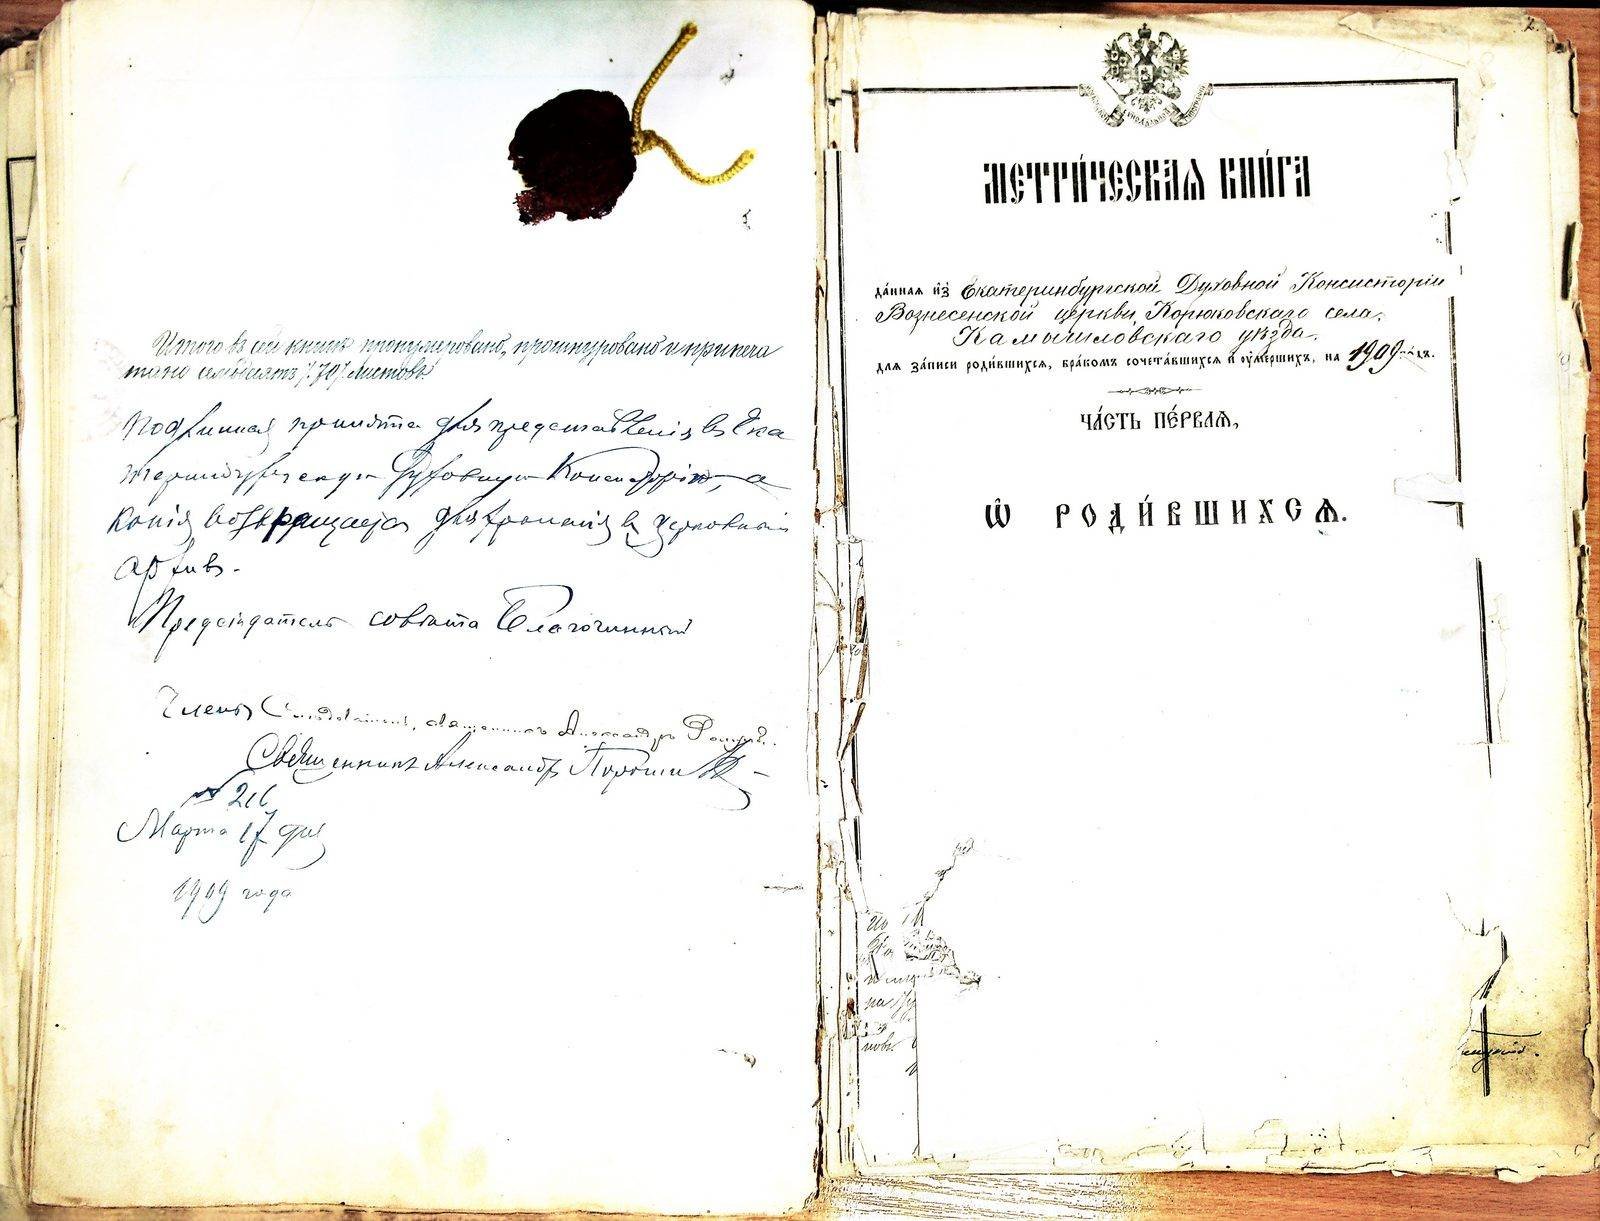 Итого въ сей книгѣ пронумеровано, прошнуровано и припеча
тано семьдесятъ /70/ листовъ.
Подлинная принята для представленія въ Ека
теринбургскую Духовную Консисторію, а
копія возвращается для храненія въ церковный
архивъ.
Предсѣдатель совѣта Благочинный
Члены священникъ Александръ
Священникъ Александръ
№ 216
Марта 17 дня
1909 года
2.
МЕТРИ́ЧЕСКАѦ КНИ́ГА
да́ннаѧ и҆з̾ Екатеринбургской Духовной Консисторіи
Вознесенской церкви, Корюковскаго села,
Камышловскаго уѣзда
длѧ за́писи роди́вшихсѧ, бра́комъ сочета́вшихсѧ и҆ ᲂу҆ме́ршихъ, на 1909 го́дъ.
ЧА́СТЬ ПЕ́РВАѦ,
Ѽ РОДИ́ВШИХСѦ.